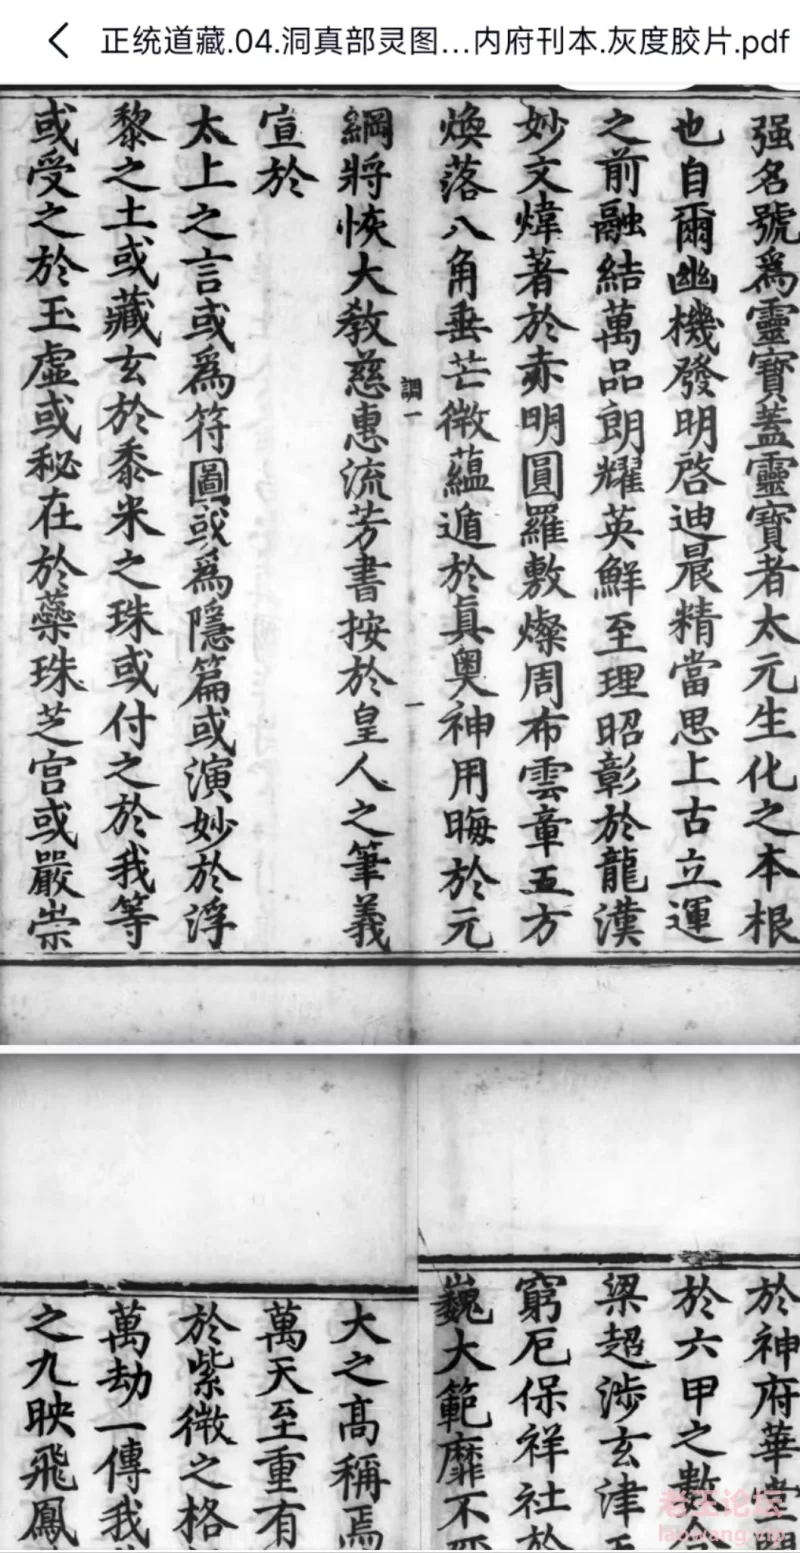 正统道藏.04.洞真部灵图...内府刊本.灰度胶片.pdf
强名號爲靈寶蓋靈寶者太元生化之本根
也自爾幽機發明啓迪晨精當思上古立運
之前融結萬品朗耀英鮮至理昭彰於龍漢
妙文煒著於赤明圓羅敷燦周布雲章五方
煥落八角垂芒微蘊遁於真奧神用晦於元
調一
一
綱將恢大教慈惠流芳書按於皇人之筆義
宣於
太上之言或爲符圖或爲隱篇或演妙於浮
黎之土或藏玄於黍米之珠或付之於我等
或受之於玉虛或秘在於蘂珠芝宮或嚴崇
於神府華
於六甲之數
梁超涉玄津
窮厄保祥社於
巍大範靡不
大之高稱焉
萬天至重有
於紫微之格
萬劫一傳我
之九映飛鳳
老王论坛
laowang.vip